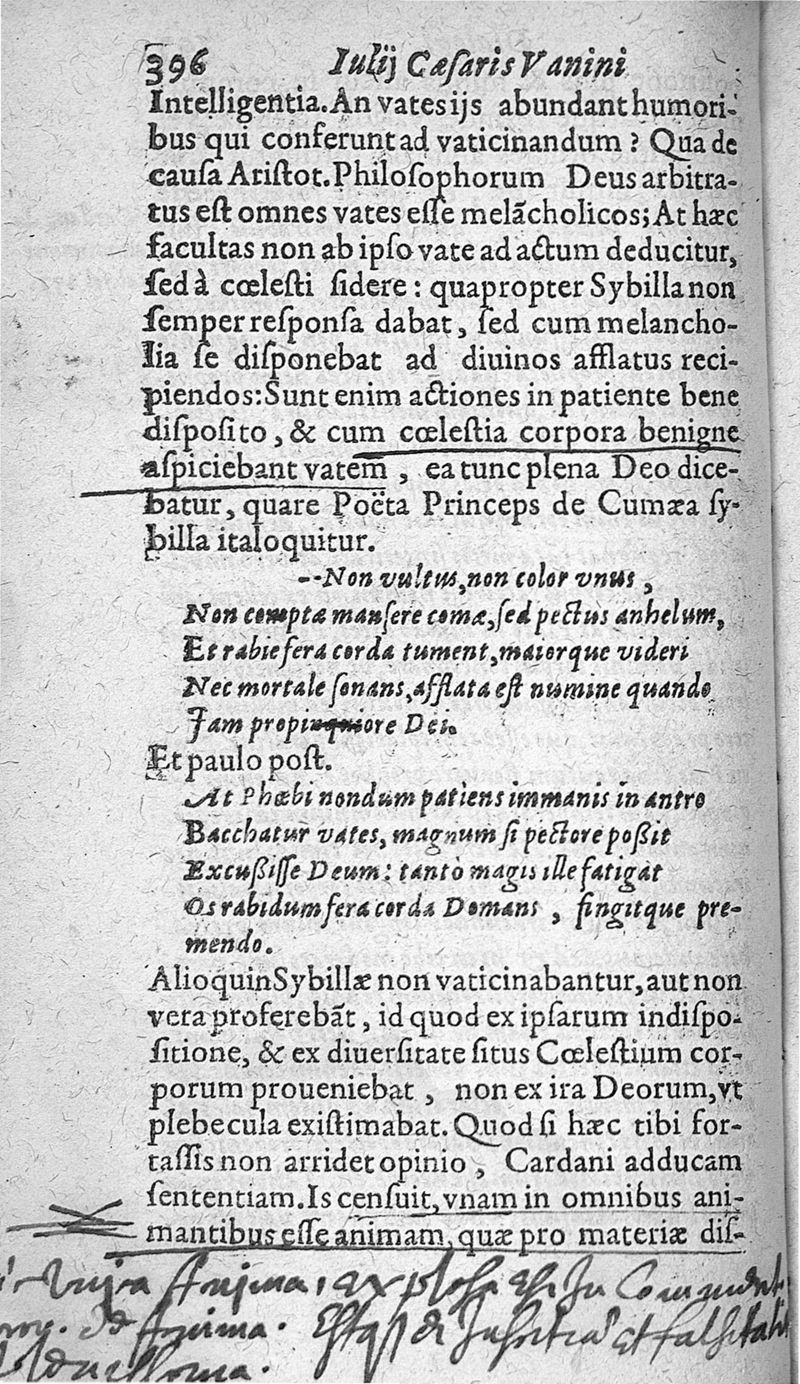 396 Iulij Cæsaris Vanini
Intelligentia. An vates ijs abundant humori-
bus qui conferunt ad vaticinandum? Qua de
causa Aristot. Philosophorum Deus arbitra-
tus est omnes vates esse melãcholicos; At hæc
facultas non ab ipso vate ad actum deducitur,
sed à cœlesti sidere: quapropter Sybilla non
semper responsa dabat, sed cum melancho-
lia se disponebat ad diuinos afflatus reci-
piendos: Sunt enim actiones in patiente bene
disposito, & cum cœlestia corpora benigne
aspiciebant vatem, ea tunc plena Deo dice-
batur, quare Poëta Princeps de Cumæa sy-
billa ita loquitur.
--Non vultus, non color vnus,
Non comptæ mansere comæ, sed pectus anhelum,
Et rabie fera corda tument, maiorque videri
Nec mortale sonans, afflata est numine quando
Jam propinquiore Dei.
Et paulo post.
At Phœbi nondum patiens immanis in antro
Bacchatur vates, magnum si pectore poßit
Excußisse Deum: tantò magis ille fatigat
Os rabidum fera corda Domans, fingitque pre-
mendo.
Alioquin Sybillæ non vaticinabantur, aut non
vera proferebãt, id quod ex ipsarum indispo-
sitione, & ex diuersitate situs Cœlestium cor-
porum proueniebat, non ex ira Deorum, vt
plebecula existimabat. Quod si hæc tibi for-
tassis non arridet opinio, Cardani adducam
sententiam. Is censuit, vnam in omnibus ani-
mantibus esse animam, quæ pro materiæ dis-
Anima, explosa est in Comment.
de Anima. et falsitatis